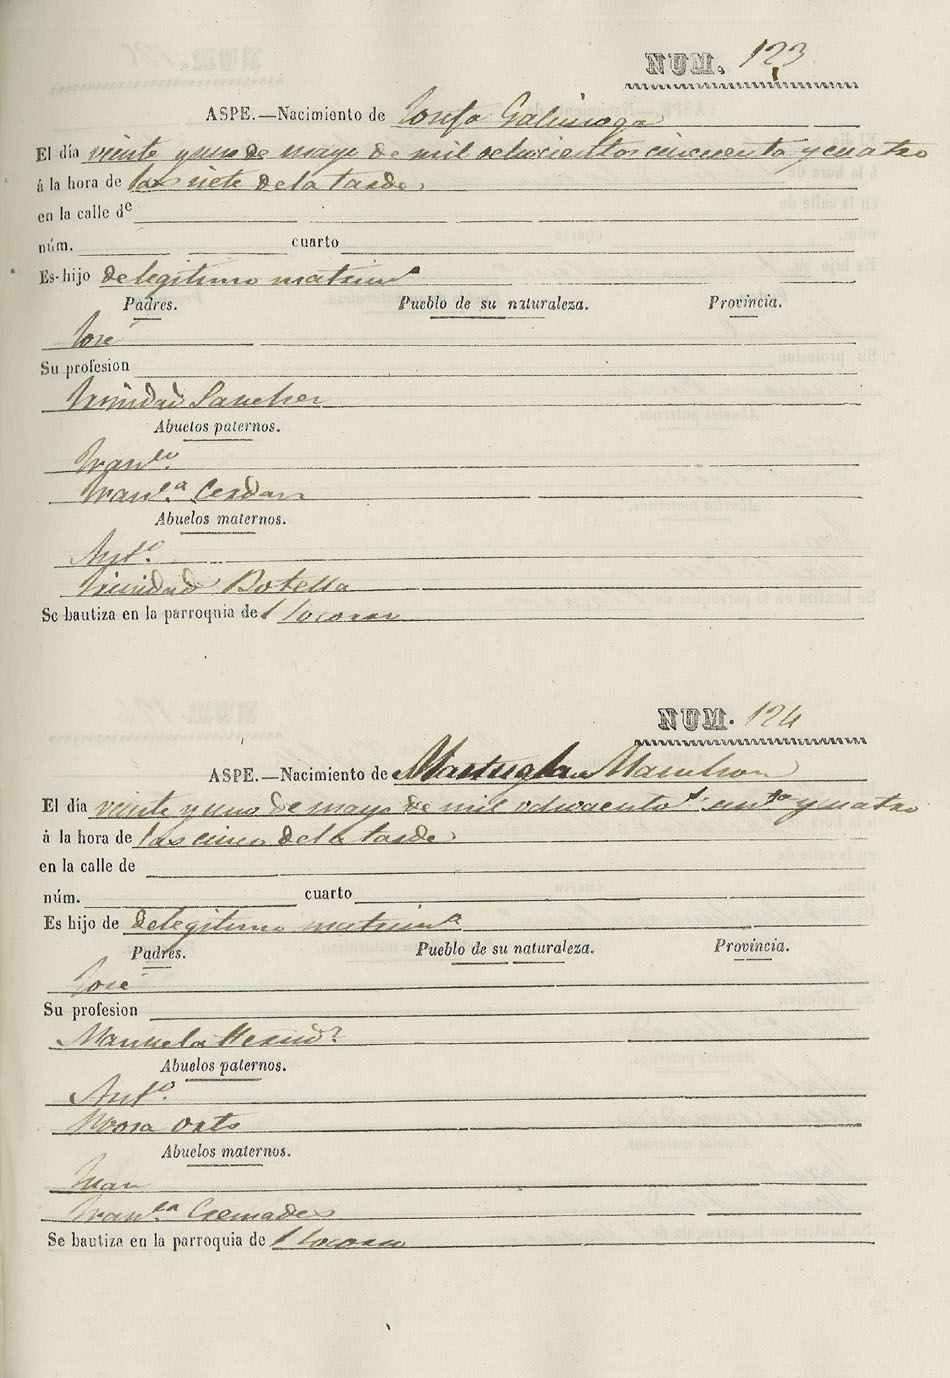 NUM. 123
ASPE.—Nacimiento de Josefa Galinsoga
El día veinte y uno de mayo de mil ochocientos cincuenta y cuatro
á la hora de las siete de la tarde
en la calle de
núm. cuarto
Es hijo de legitimo matrim.º
Padres. Pueblo de su naturaleza. Provincia.
José
Su profesion
Trinidad Sanchez
Abuelos paternos.
Fran.co
Fran.ca Cerdan
Abuelos maternos.
Ant.º
Trinidad Botella
Se bautiza en la parroquia del Socorro
NUM. 124
ASPE.—Nacimiento de
El día veinte y uno de mayo de mil ochociento y cuatro
á la hora de las cinco de la tarde
en la calle de
núm. cuarto
Es hijo de de legitimo matrim.º
Padres. Pueblo de su naturaleza. Provincia.
José
Su profesion
Manuela
Abuelos paternos.
Ant.º
Rosa Orts
Abuelos maternos.
Juan
Fran.ca Cremades
Se bautiza en la parroquia del Socorro